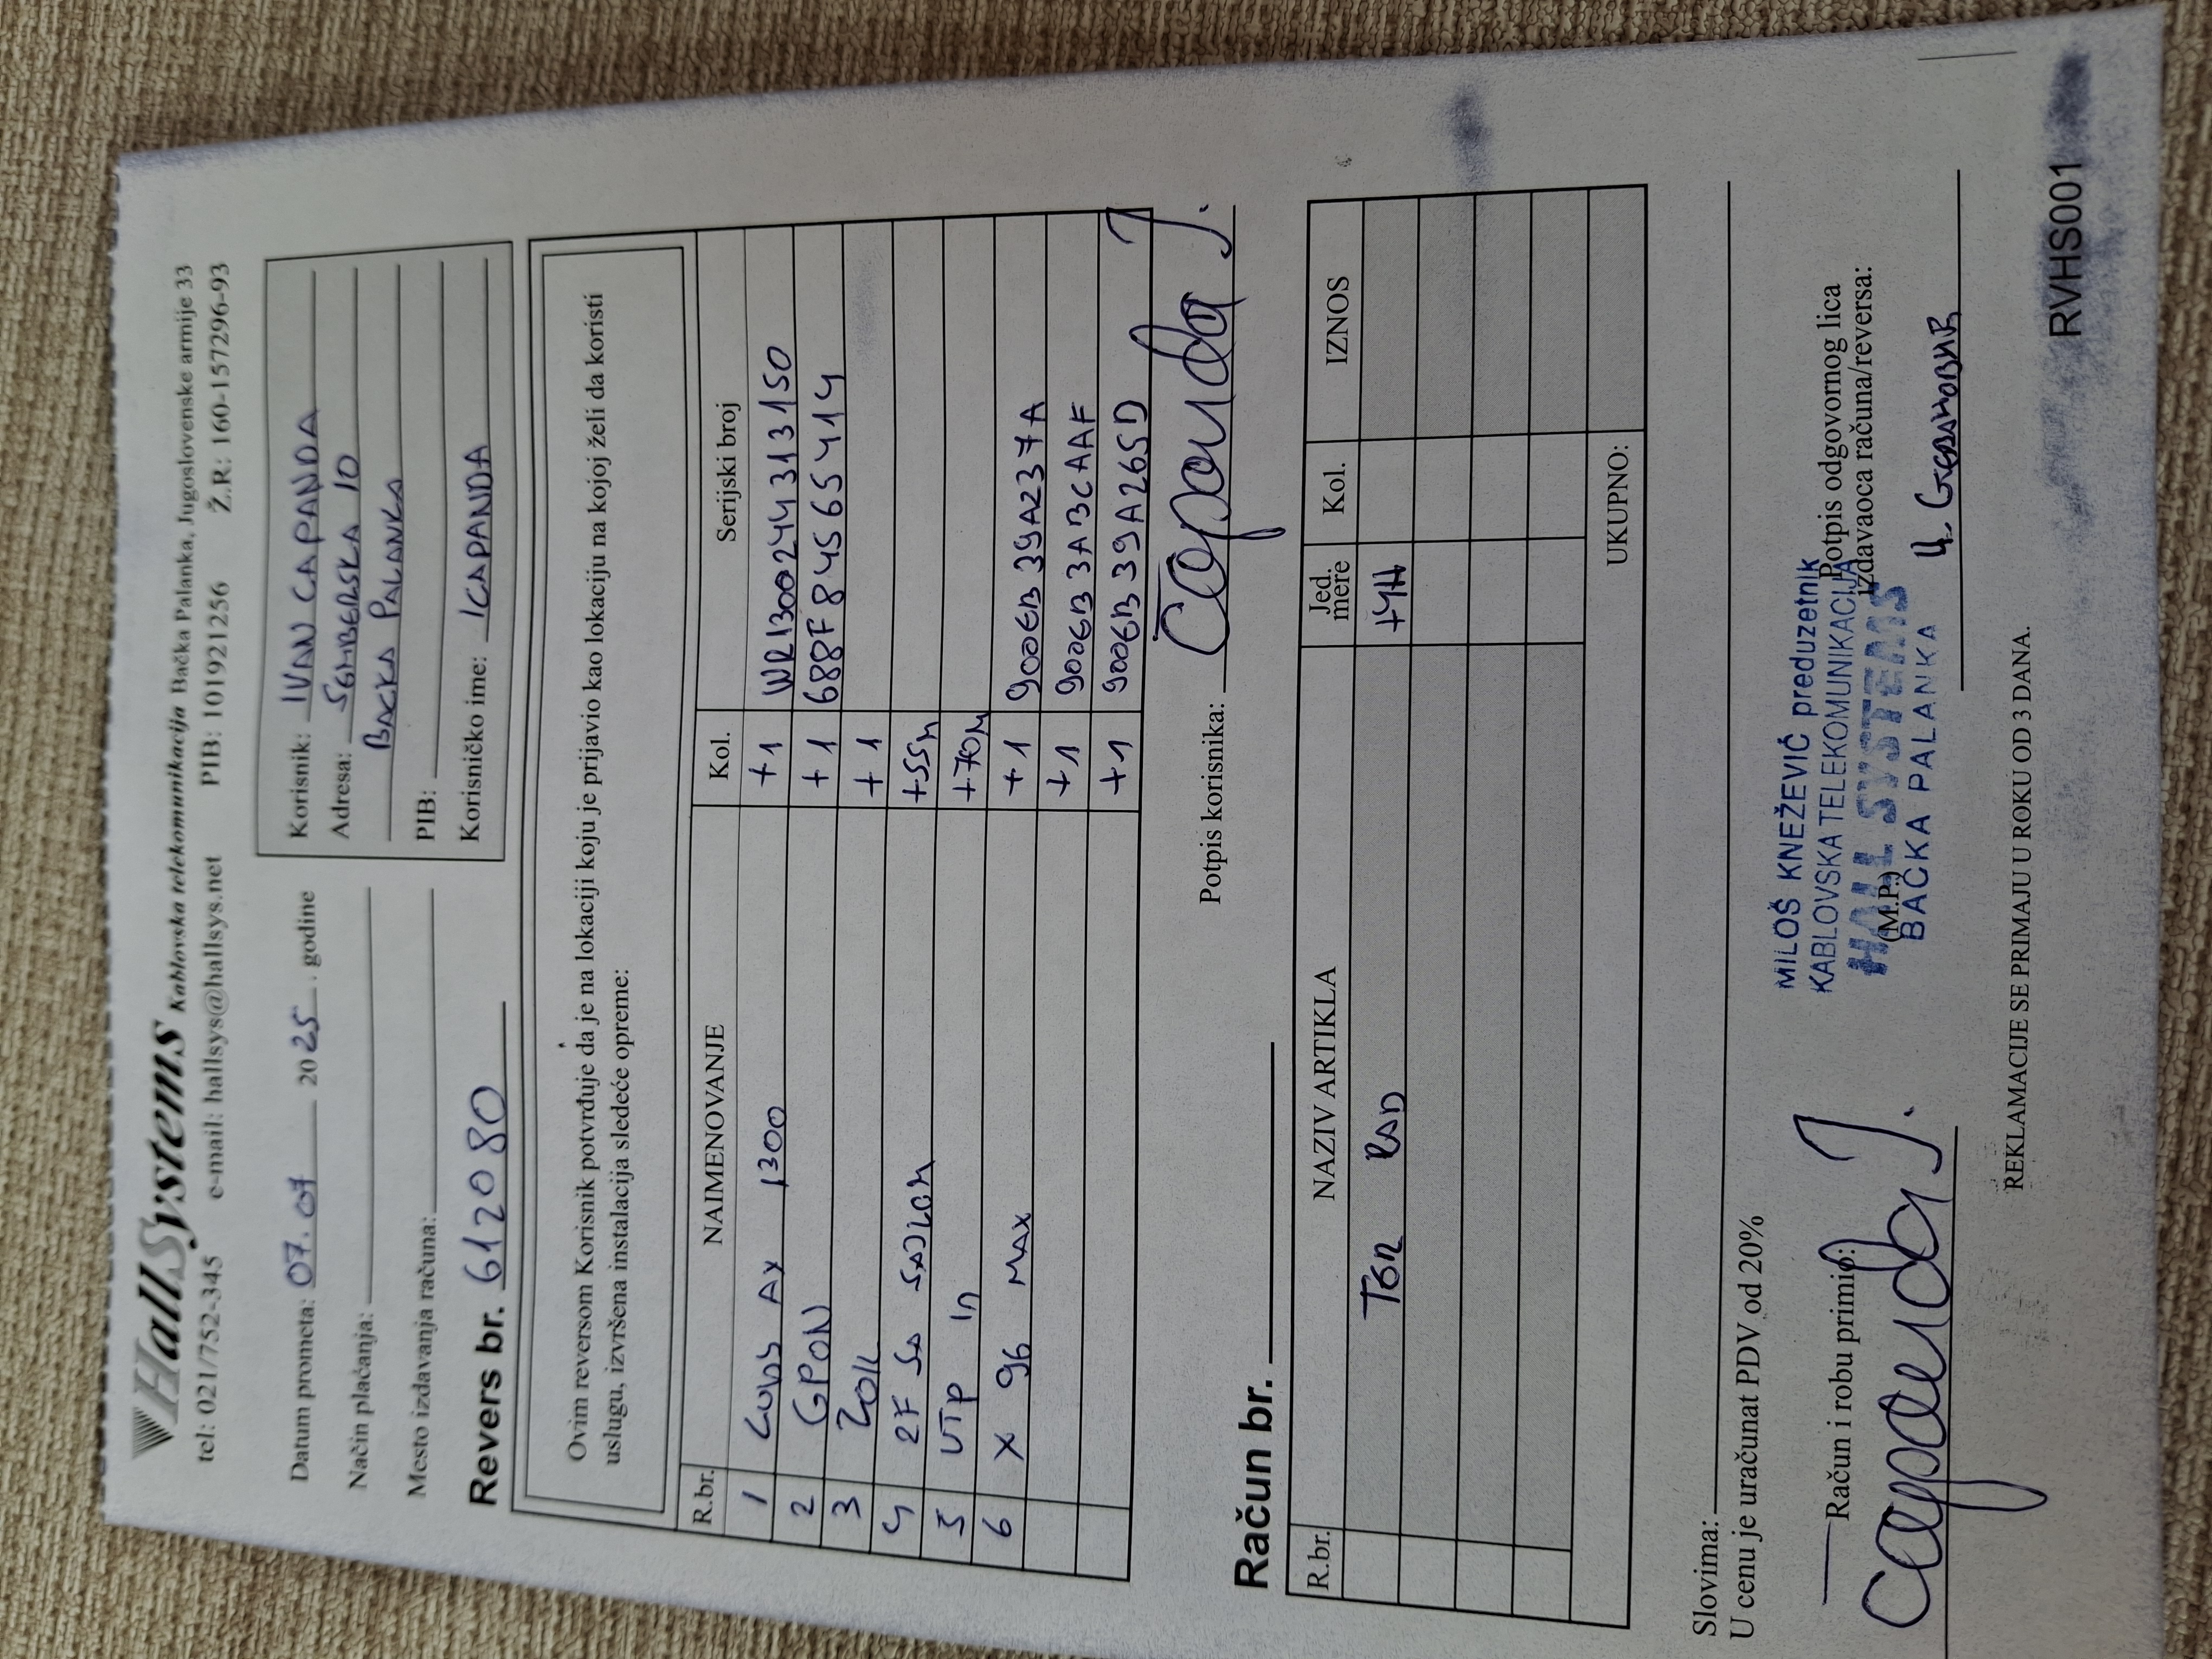 HallSystems Kablovska telekomunikacija Bačka Palanka, Jugoslovenske armije 33
tel: 021/752-345 e-mail: hallsys@hallsys.net PIB: 101921256 Ž.R: 160-157296-93
Datum prometa: 07.07 2025. godine
Način plaćanja:
Mesto izdavanja računa:
Revers br. 612080
Korisnik: IVAN CAPANDA
Adresa: SEMBERSKA 10
BACKA PALANKA
PIB:
Korisničko ime: ICAPANDA
Ovim reversom Korisnik potvrđuje da je na lokaciji koju je prijavio kao lokaciju na kojoj želi da koristi
uslugu, izvršena instalacija sledeće opreme:
R.br. NAIMENOVANJE Kol. Serijski broj
1 CUDY AX 1300 +1 WR1300244313150
2 GPON +1 688F84565414
3 ZOK +1
4 2F SA SAJLOM +55m
5 UTP in +70m
6 X 96 MAX +1 9006B39A237A
+1 9006B3ABCAAF
+1 9006B39A265D
Potpis korisnika: Capanda J.
Račun br.
R.br. NAZIV ARTIKLA Jed. mere Kol. IZNOS
TER RAD +4H
UKUPNO:
Slovima:
U cenu je uračunat PDV od 20%
Račun i robu primio:
Capanda J.
(M.P.)
MILOŠ KNEŽEVIĆ preduzetnik
KABLOVSKA TELEKOMUNIKACIJA
HALL SYSTEMS
BAČKA PALANKA
Potpis odgovornog lica
izdavaoca računa/reversa:
REKLAMACIJE SE PRIMAJU U ROKU OD 3 DANA.
RVHS001